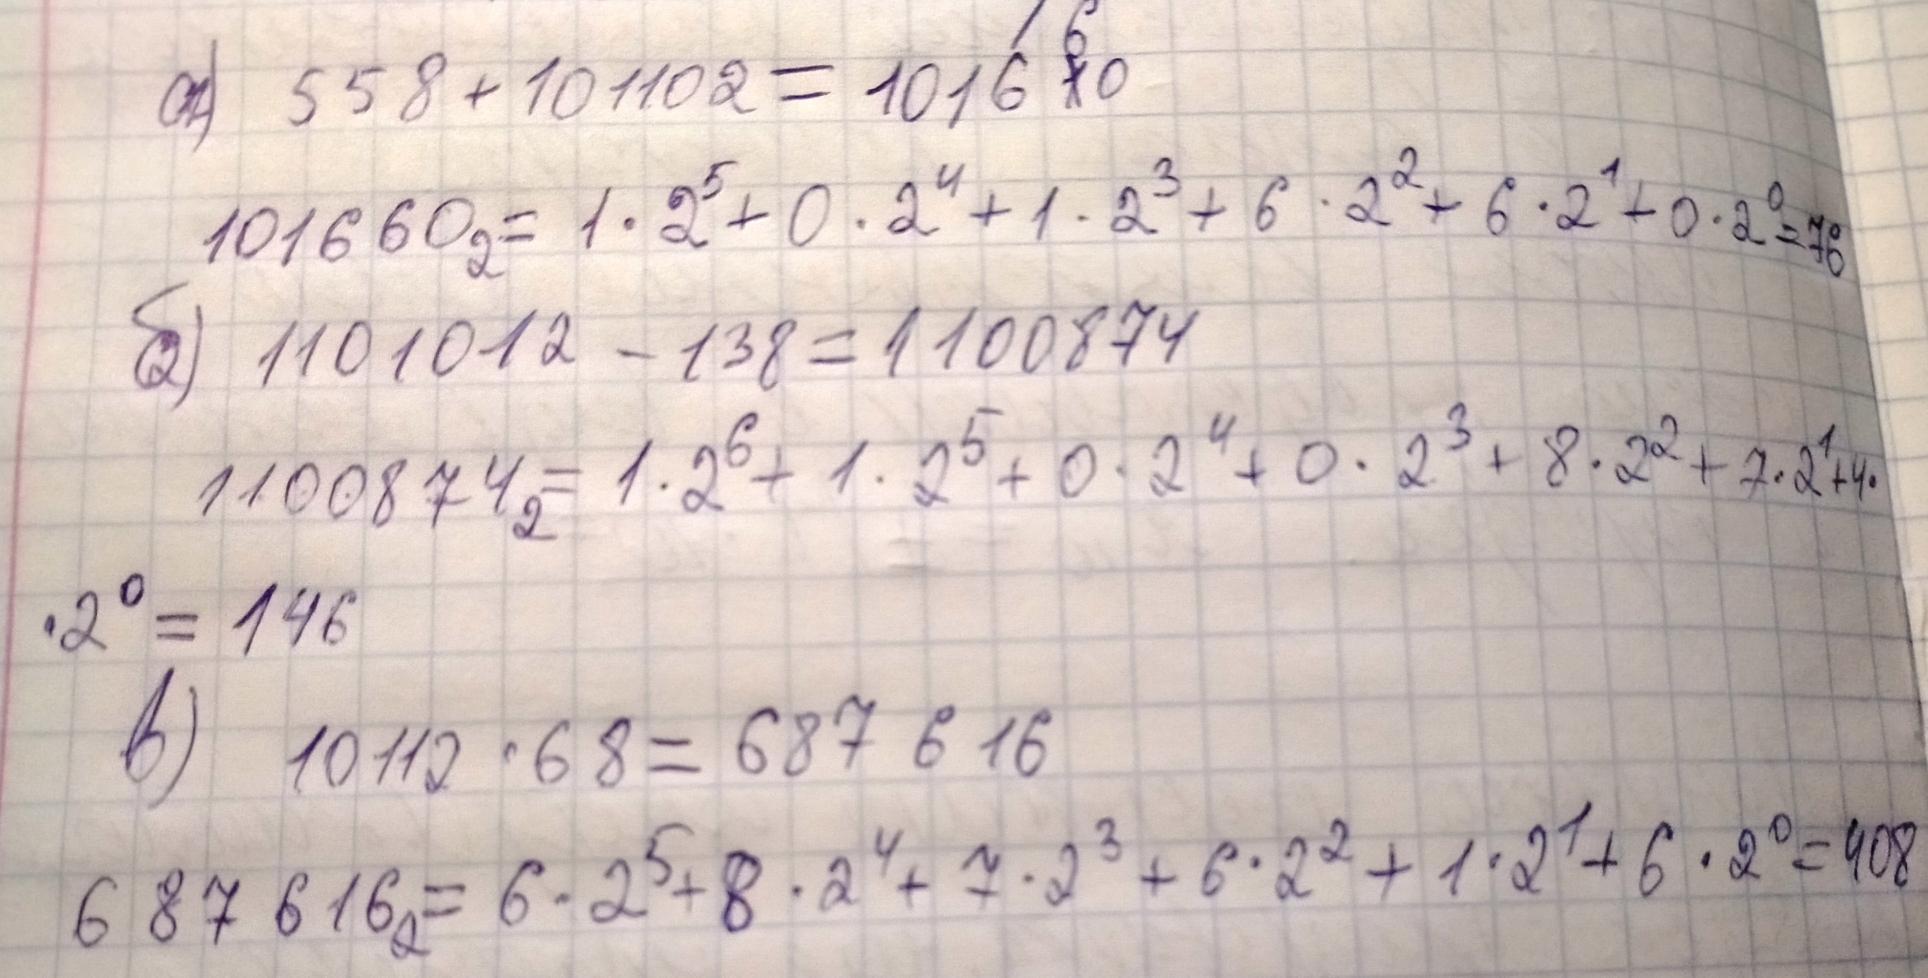 а) 558 + 101102 = 101660
101660₂ = 1·2⁵ + 0·2⁴ + 1·2³ + 6·2² + 6·2¹ + 0·2⁰ = 76
б) 1101012 - 138 = 1100874
1100874₂ = 1·2⁶ + 1·2⁵ + 0·2⁴ + 0·2³ + 8·2² + 7·2¹ + 4·
·2⁰ = 146
в) 10112 · 68 = 687616
687616₂ = 6·2⁵ + 8·2⁴ + 7·2³ + 6·2² + 1·2¹ + 6·2⁰ = 408